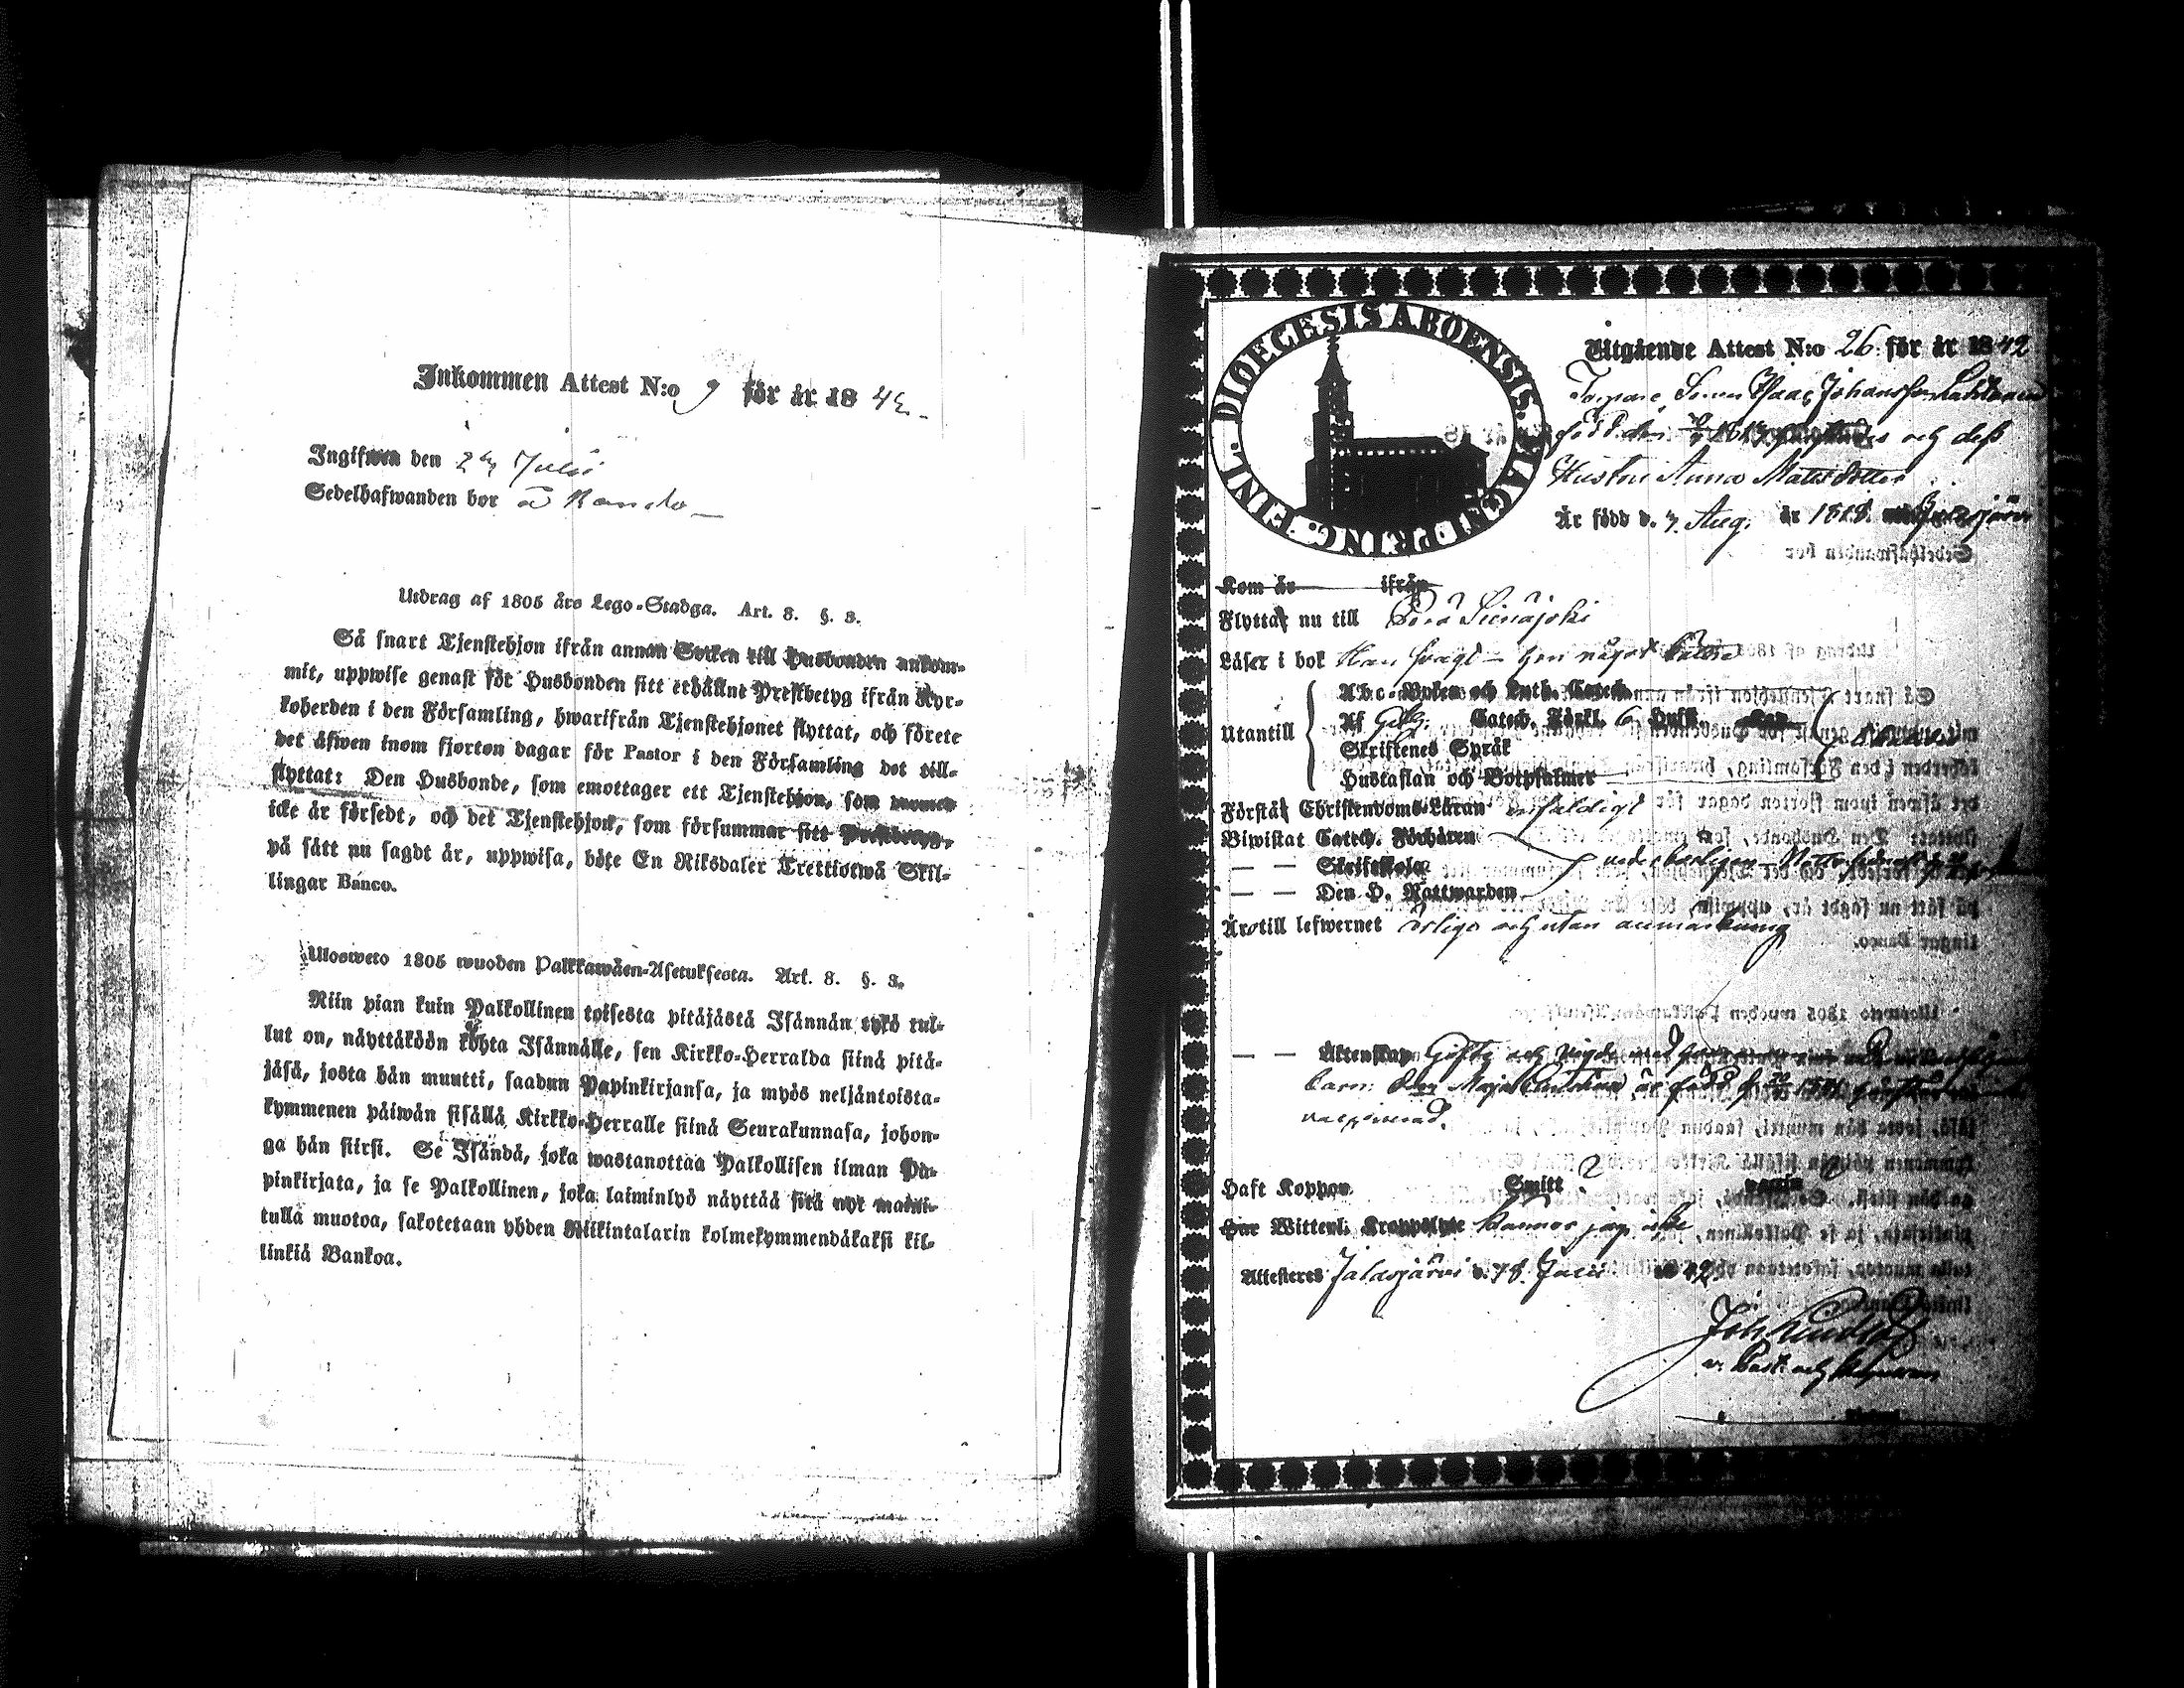 Inkommen Attest N:o 9 för år 1842.
Ingifwen den 24 Julii
Sedelhafwanden bor å Rando
Utdrag af 1805 års Lego-Stadga. Art. 8. §. 3.
Så snart Tjenstehjon ifrån annan Socken till Husbonden ankom-
mit, uppwise genast för Husbonden sitt erhållne Prestbetyg ifrån Kyr-
koherden i den Församling, hwarifrån Tjenstehjonet flyttat, och förete
det äfwen inom fjorton dagar för Pastor i den Församling det till-
flyttat: Den Husbonde, som emottager ett Tjenstehjon, som
icke är försedt, och det Tjenstehjon, som försummar sitt Prestbetyg,
på sätt nu sagdt är, uppwisa, böte En Riksdaler Trettiotwå Skil-
lingar Banco.
Ulosweto 1805 wuoden Palkkawäen-Asetuksesta. Art. 8. §. 3.
Niin pian kuin Palkollinen toisesta pitäjästä Isännän tykö tul-
lut on, näyttäköön kohta Isännälle, sen Kirkko-Herralda siinä pitä-
jäsä, josta hän muutti, saadun Papinkirjansa, ja myös neljäntoista-
kymmenen päiwän sisällä Kirkko-Herralle siinä Seurakunnasa, johon-
ga hän siirsi. Se Isändä, joka wastanottaa Palkollisen ilman Pa-
pinkirjata, ja se Palkollinen, joka laiminlyö näyttää sitä nyt maini-
tulla muotoa, sakotetaan yhden Riikintalarin kolmekymmendäkaksi kil-
linkiä Bankoa.
FINL. DIOECESIS ABOENSIS. MAGNI PRINC.
Utgående Attest N:o 26. för år 1842
Son Isaac Johansson
född den och dess
Hustru Anna Mattsdotter
Är född d. 7. Aug. år 1818. Jalasjärvi
Kom år ifrån
Flyttar nu till Peräseinäjoki
Läser i bok Han svagt - hon något bättre
Utantill
Abc-Boken och Luth. Catech.
Af Catech. Förkl. 6 Hufst.
Skriftenes Språk
Hustaflan och Botpsalmer
Förstår Christendoms-Läran enfaldigt
Biwistat Catech. Förhören
— — Skriftskola
— — Den H. Nattwarden
Äro till lefwernet ärlige och utan anmärkning
— — Äktenskap Gifte och vigde
barn: Maja Christina är född
vaccinerad.
Haft Koppor Smitt
Har Witterl. Kroppslyte känner jag icke
Attesteres Jalasjärvi d. 18. Julii 42
v. Past. och